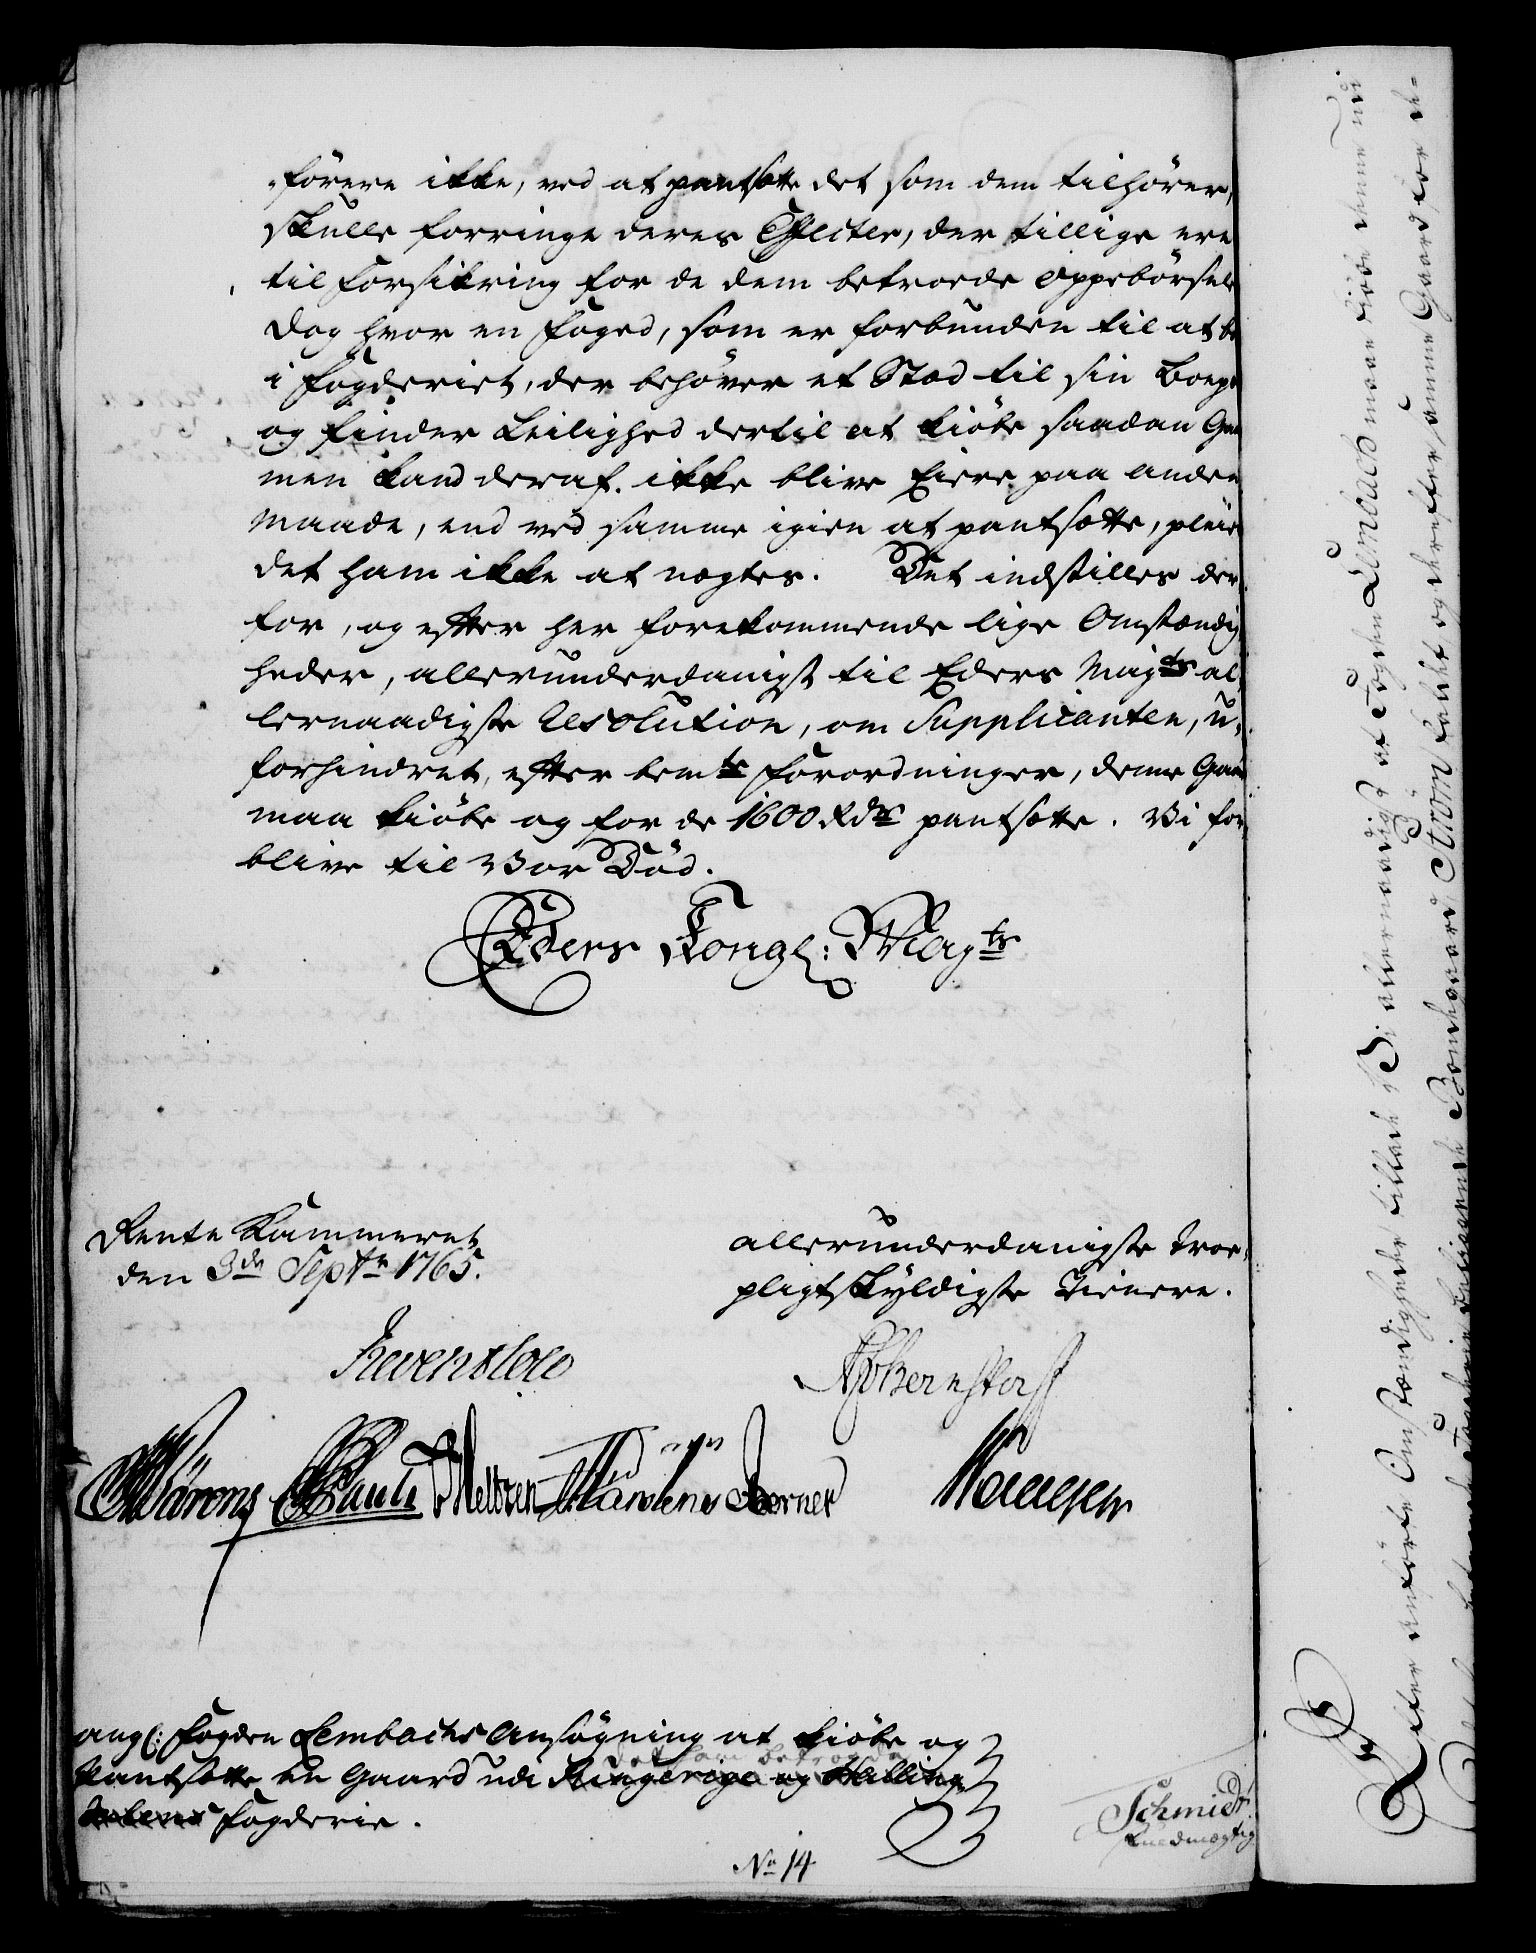 „förere ikke, ved at pantsætte det som dem tilhører,
skulle forringe deres Effecter, der tillige ere
til Forsikring for de dem betroede Oppebörsele
Dog hvor en Foged, som er forbunden til at boe
i Fogderiet, der behøver et Sted til sin Boepæl
og finder Leilighed dertil at kiöbe saadan Gaard
men kand deraf ikke blive Eiere paa anden
Maade, end ved samme igien at pantsætte, pleier
det ham ikke at nægtes. Det indstilles der
for, og efter her forekommende lige Omstændig
heder, allerunderdanigst til Eders Majts al
lernaadigste Resolution, om Supplicanten, u-
forhindret efter bemte Forordninger, denne Gaard
maa kiöbe og for de 1600 Rdr pantsætte. Vi for
blive til Vor Död.
Eders Kongl: Mayts
Rente Kammeret
den 3de Septr 1765.
allerunderdanigste troe
pligtskyldigste Tienere.
Reventlow
Bernstorff
Pauli
Berner
angl: Fogden Lembachs Ansögning at kiöbe og
Pantsætte en Gaard udi det ham betroede
Ringerige og Halling
dalens Fogderie.
No 14
Schmidt
Fuldmægtig
Efter anförte Omstændigheder tillade Vi allernaadigst at Fogden Lembach maae kiöbe denne udi
Gaard Ström kaldet og derefter samme Gaard for de-